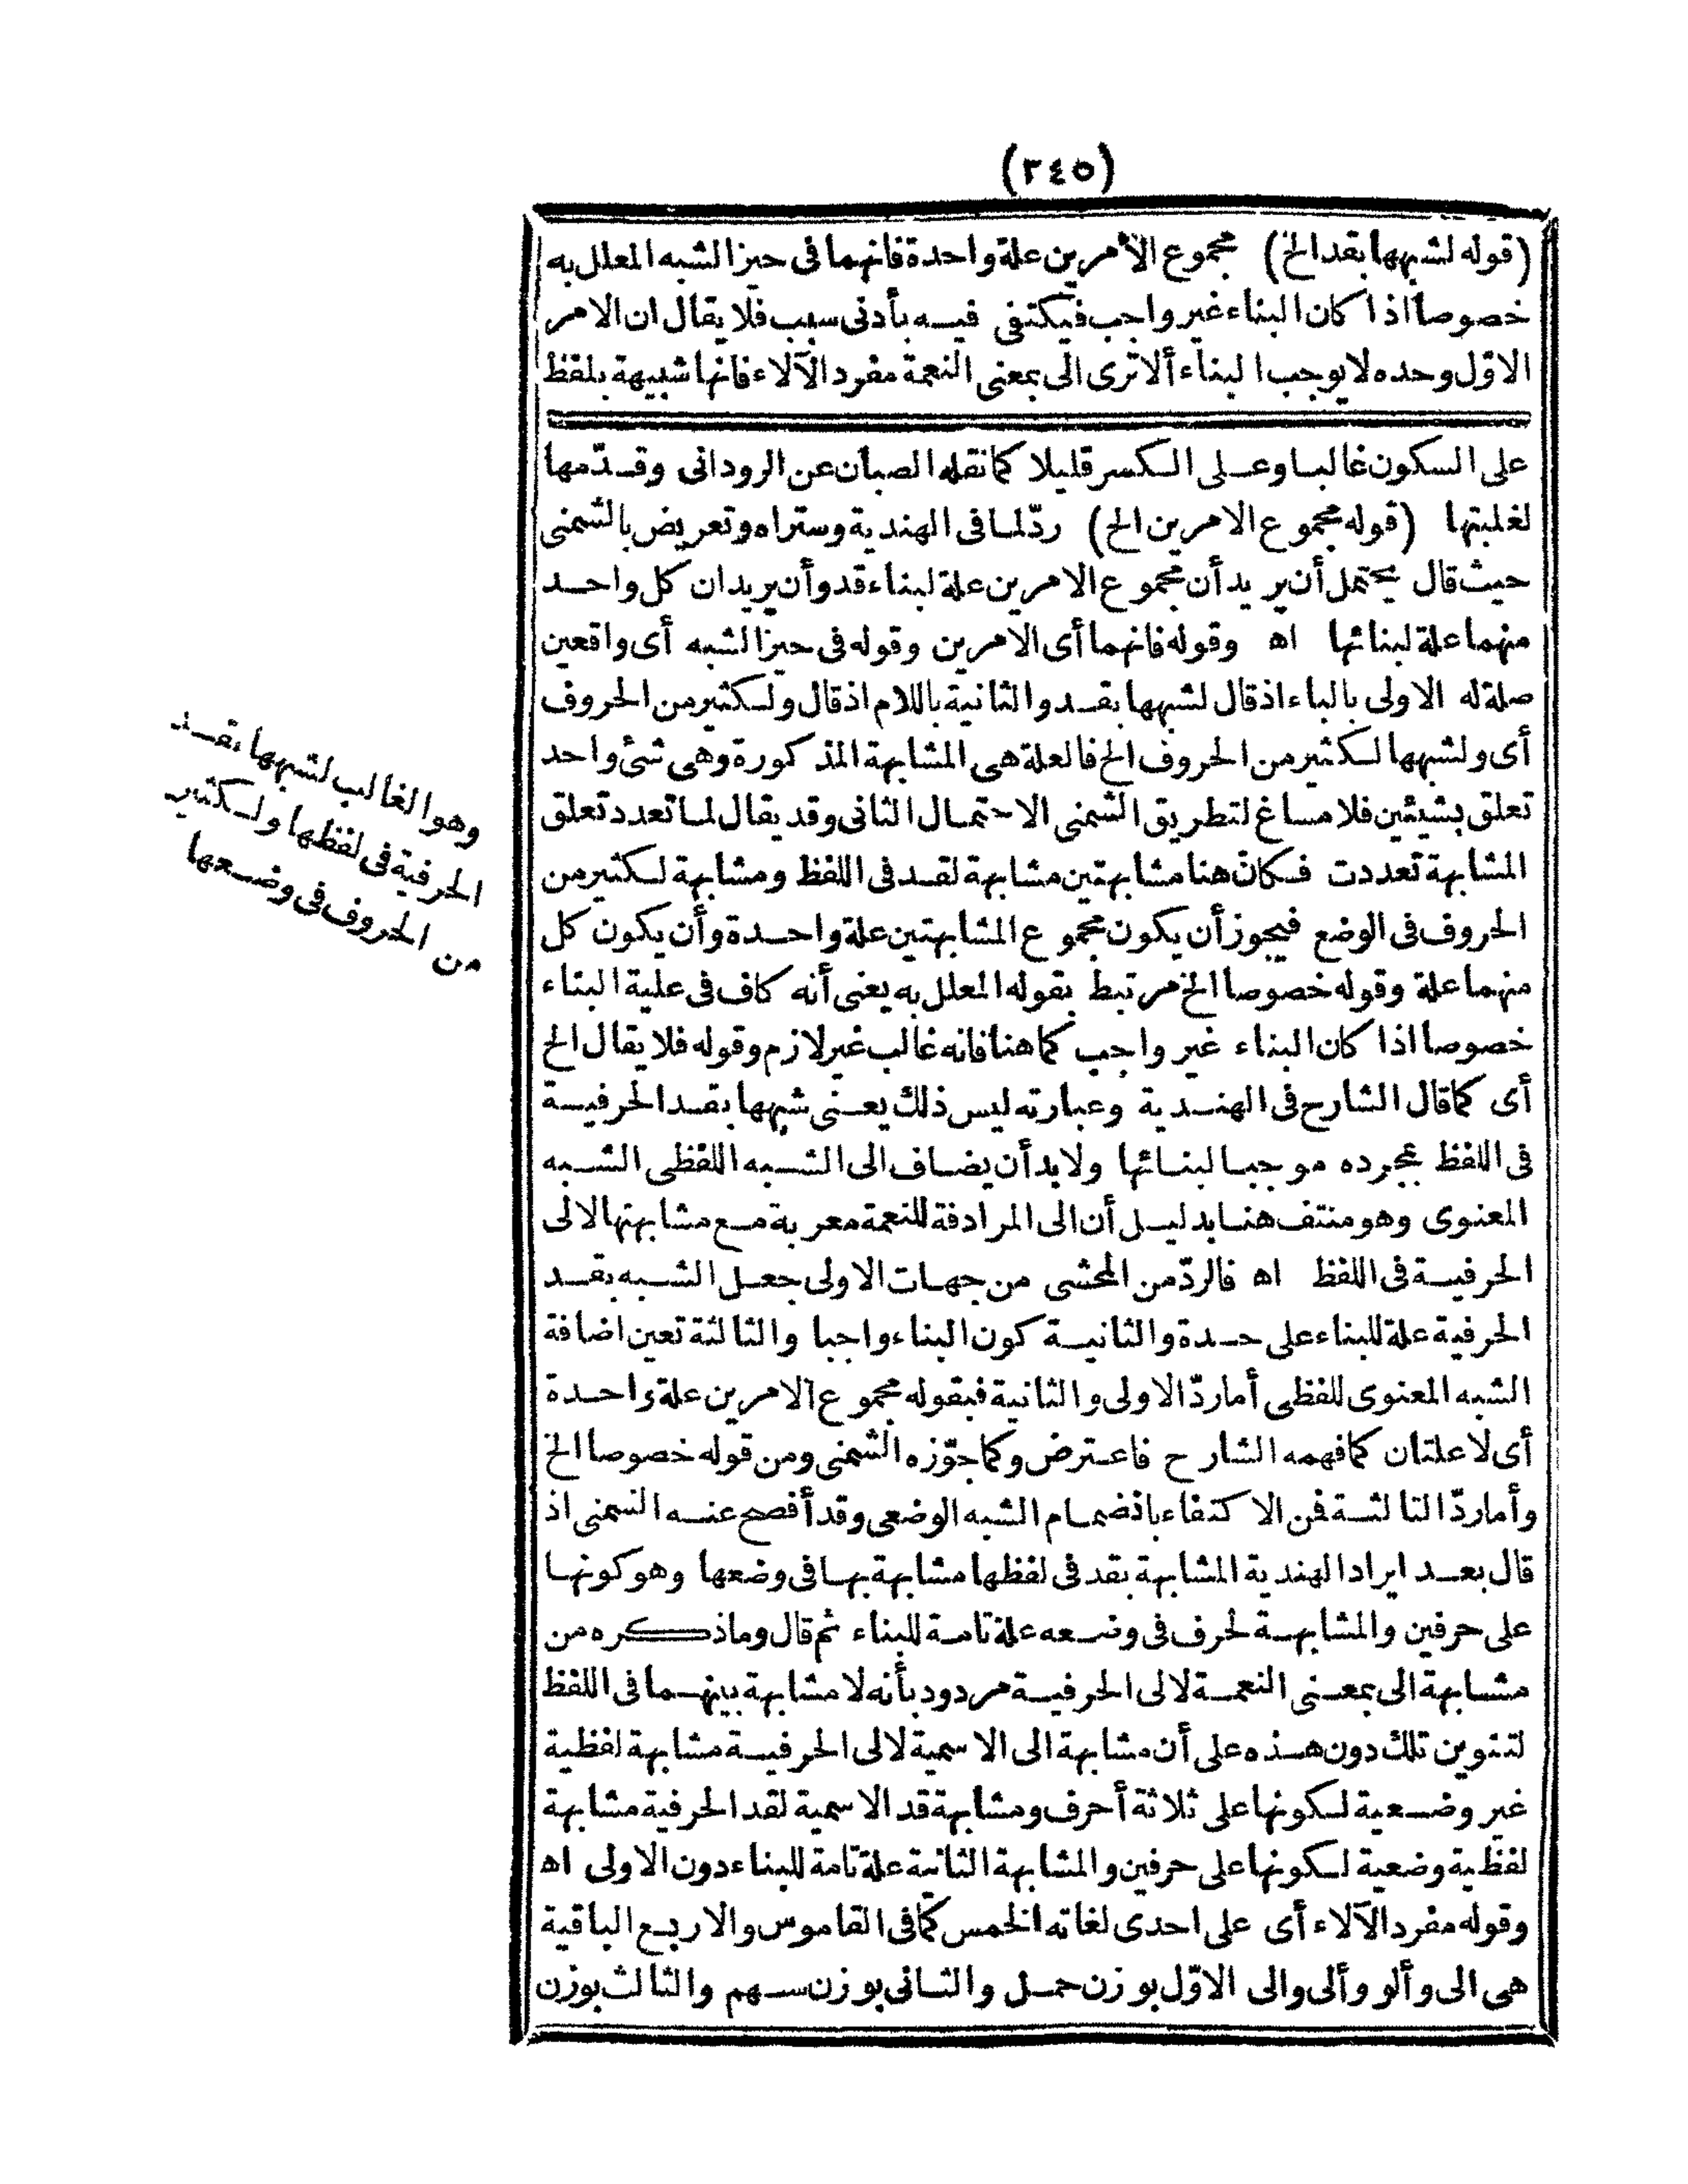 (٣٤٥)
(قوله لشبهها بقد الخ) مجموع الأمرين علة واحدة فانهما فى حيز الشبه المعلل به
خصوصا اذا كان البناء غير واجب فيكتفى فيه بأدنى سبب فلا يقال ان الامر
الاوّل وحده لا يوجب البناء ألا ترى الى بمعنى النعمة مفرد الآلاء فانها شبيهة بلفظ
على السكون غالبا وعلى الكسر قليلا كما نقله الصبان عن الرودانى وقدّمها
لغلبتها (قوله مجموع الامرين الخ) ردّ لما فى الهندية وستراه وتعريض بالشمنى
حيث قال يحتمل أن يريد أن مجموع الامرين علة لبناء قد وأن يريد ان كل واحد
منهما علة لبنائها اه وقوله فانهما أى الامرين وقوله فى حيز الشبه أى واقعين
صلة له الاولى بالباء اذ قال لشبهها بقد والثانية باللام اذ قال ولكثير من الحروف
أى ولشبهها لكثير من الحروف الخ فالعلة هى المشابهة المذكورة وهى شئ واحد
تعلق بشيئين فلا مساغ لتطريق الشمنى الاحتمال الثانى وقد يقال لما تعدد تعلق
المشابهة تعددت فكانّ هنا مشابهتين مشابهة لقد فى اللفظ ومشابهة لكثير من
الحروف فى الوضع فيجوز أن يكون مجموع المشابهتين علة واحدة وأن يكون كل
منهما علة وقوله خصوصا الخ مرتبط بقوله المعلل به يعنى أنه كاف فى علية البناء
خصوصا اذا كان البناء غير واجب كما هنا فانه غالب غير لازم وقوله فلا يقال الخ
أى كما قال الشارح فى الهندية وعبارته ليس ذلك يعنى شبهها بقد الحرفية
فى اللفظ بمجرده موجبا لبنائها ولا بد أن يضاف الى الشبه اللفظى الشبه
المعنوى وهو منتف هنا بدليل أن الى المرادفة للنعمة معربة مع مشابهتها لالى
الحرفية فى اللفظ اه فالردّ من المحشى من جهات الاولى جعل الشبه بقد
الحرفية علة للبناء على حدة والثانية كون البناء واجبا والثالثة تعين اضافة
الشبه المعنوى للفظى أما ردّ الاولى والثانية فبقوله مجموع الامرين علة واحدة
أى لا علتان كما فهمه الشارح فاعترض وكما جوّزه الشمنى ومن قوله خصوصا الخ
وأما ردّ الثالثة فمن الاكتفاء بانضمام الشبه الوضعى وقد أفصح عنه الشمنى اذ
قال بعد ايراد الهندية المشابهة بقد فى لفظها مشابهة بها فى وضعها وهو كونها
على حرفين والمشابهة لحرف فى وضعه علة تامة للبناء ثم قال وما ذكره من
مشابهة الى بمعنى النعمة لالى الحرفية مردود بأنه لا مشابهة بينهما فى اللفظ
لتنوين تلك دون هذه على أن مشابهة الى الاسمية لالى الحرفية مشابهة لفظية
غير وضعية لكونها على ثلاثة أحرف ومشابهة قد الاسمية لقد الحرفية مشابهة
لفظية وضعية لكونها على حرفين والمشابهة الثانية علة تامة للبناء دون الاولى اه
وقوله مفرد الآلاء أى على احدى لغاته الخمس كما فى القاموس والاربع الباقية
هى الى وألو وألى والى الاوّل بوزن حمل والثانى بوزن سهم والثالث بوزن
وهو الغالب لشبهها بقد
الحرفية فى لفظها ولكثير
من الحروف فى وضعها